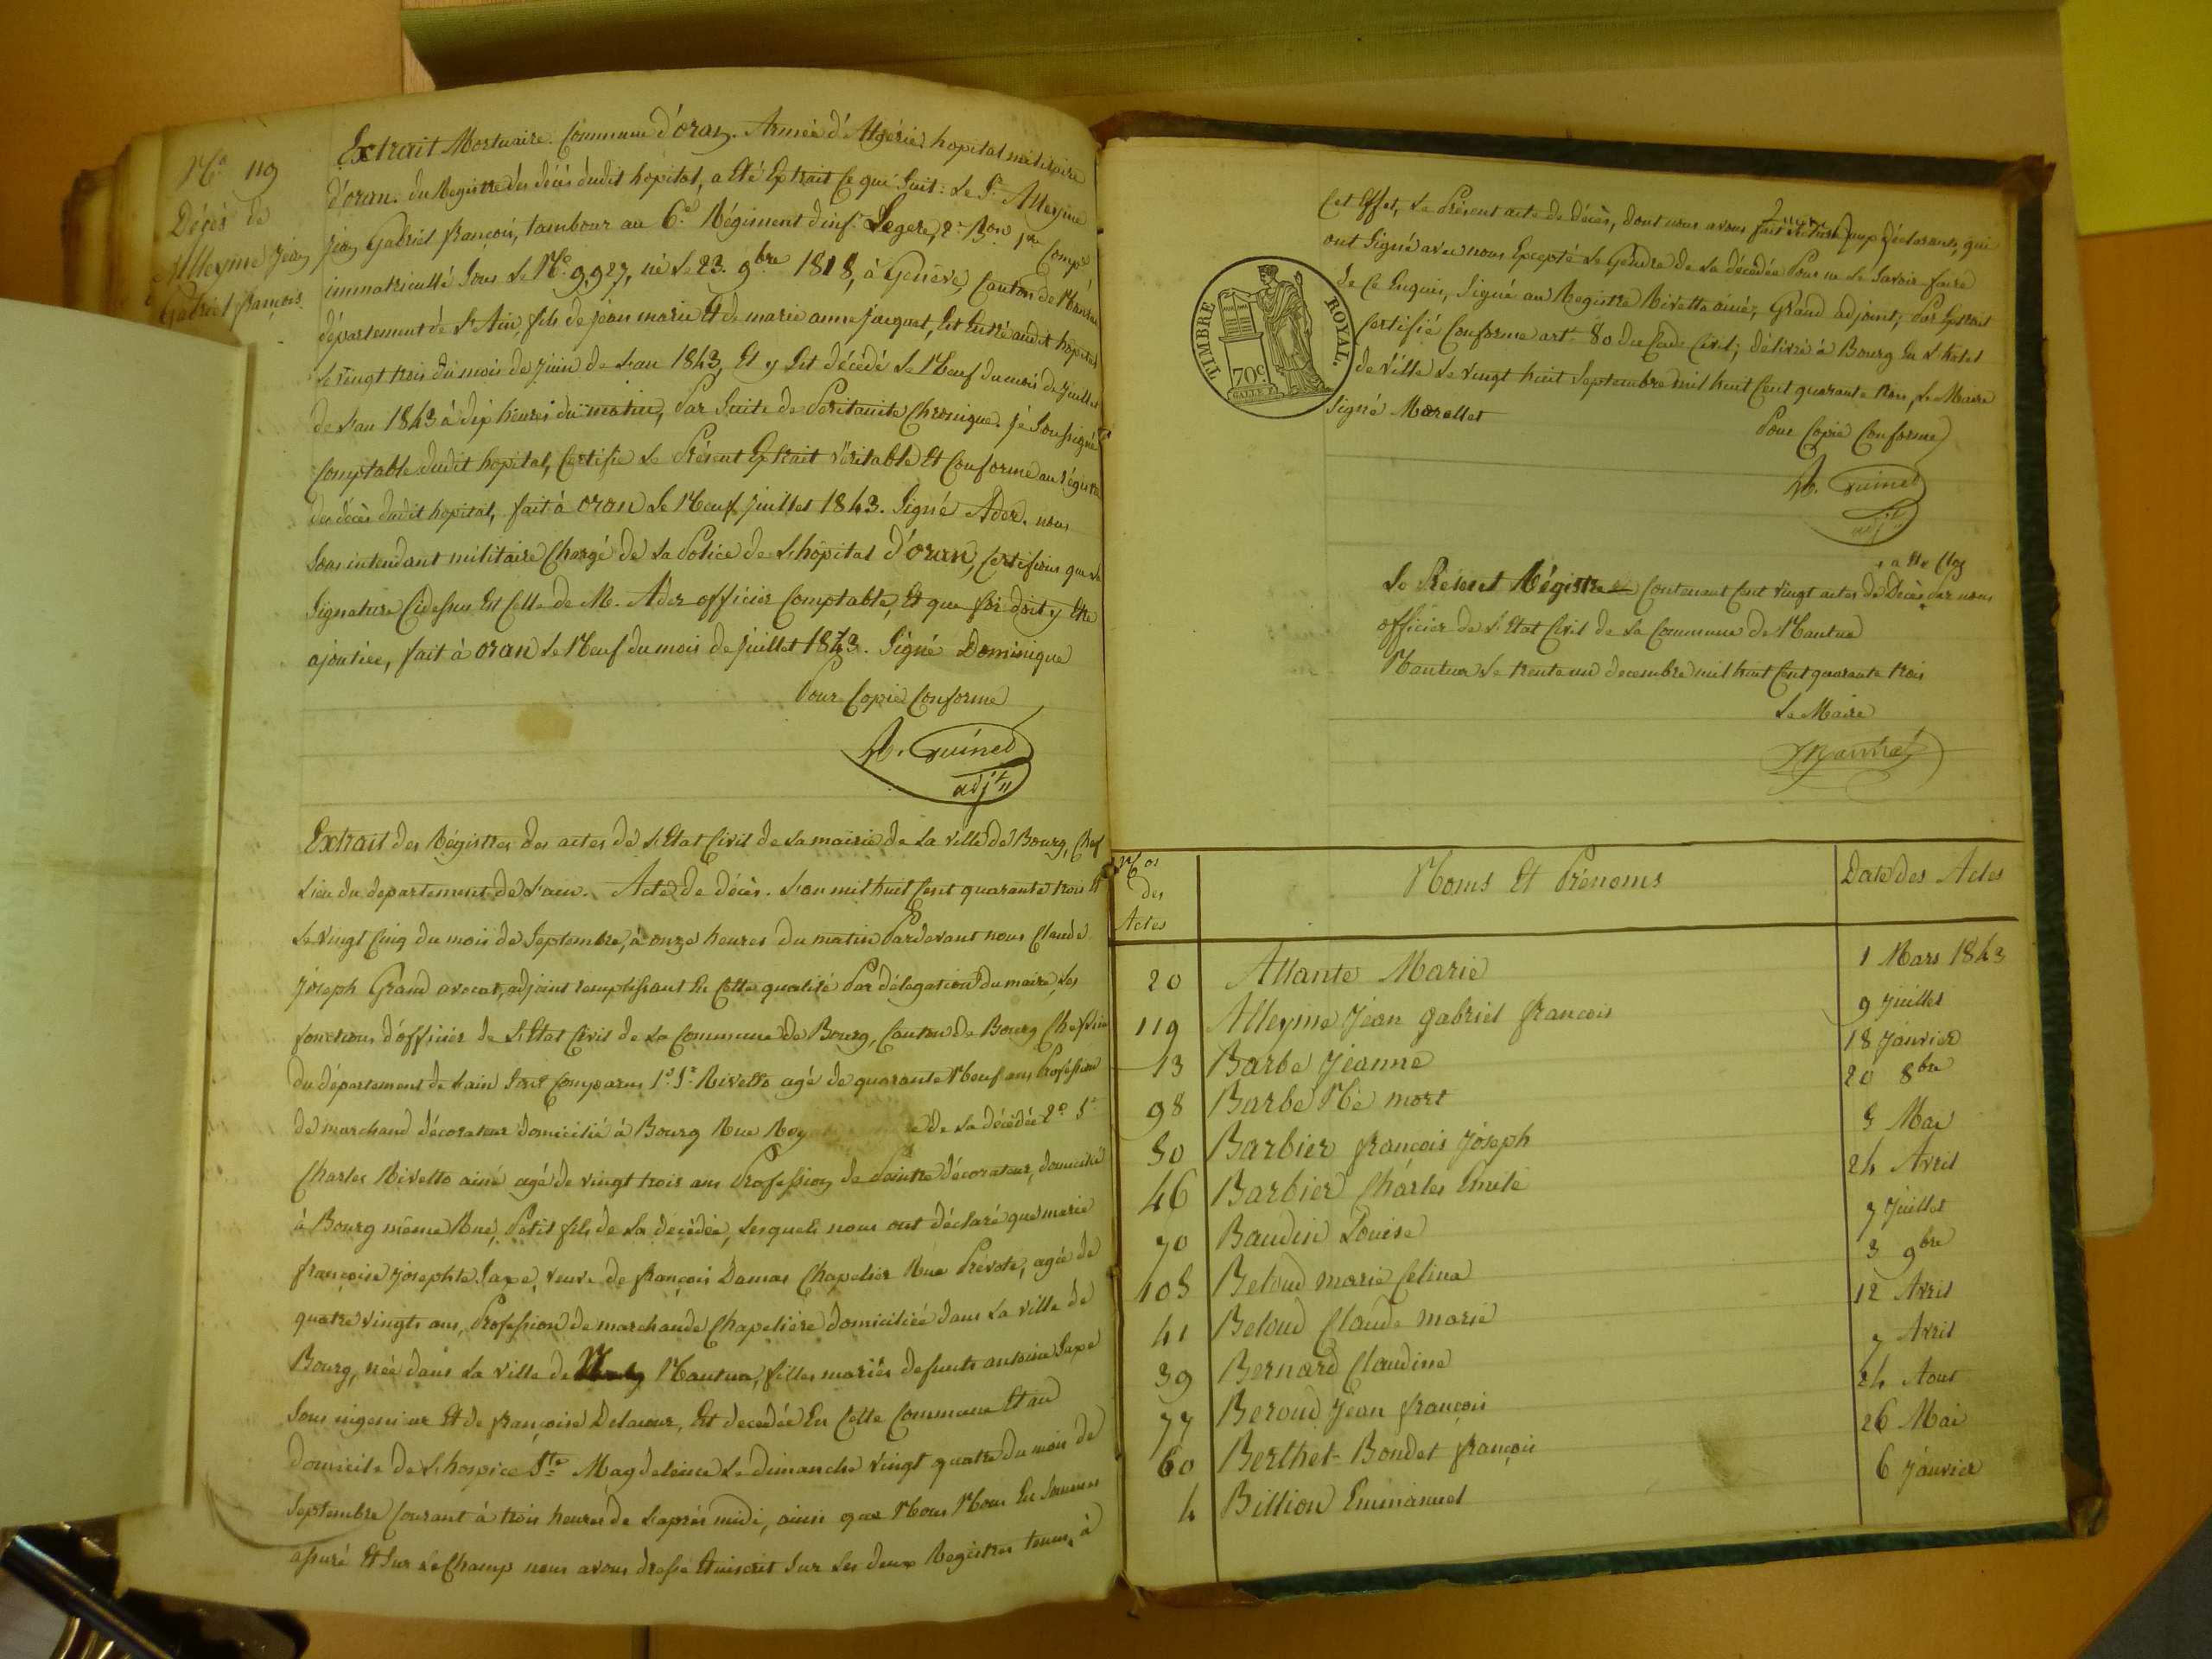 No 119
Décès de
Alleyme Jean
Gabriel françois.
Extrait Mortuaire. Commune d'oran. Armée d'Algérie hopital militaire
d'oran. du Registre des décès dudit hôpital, a Eté Extrait Ce qui Suit: Le Sr. Alleyme
jean Gabriel françois, tambour au 6.e Régiment d'inf. Legere, 2e Bon 1re Compe
immatriculé Sous Le No 9,927, né Le 23. 9bre 1818, à Genève, Canton de Nantua
département de L'Ain, fils de jean marie Et de marie anne jacquet, Est Entré audit hopital
Le vingt trois du mois de juin de L'an 1843, Et y Est décédé Le Neuf du mois de juillet
de L'an 1843 à dix heures du matin, Par Suite de Péritonite Chronique. je Soussigné
Comptable dudit hopital, Certifie Le Présent Extrait véritable Et Conforme au régistre
des décès dudit hopital, fait à oran Le Neuf juillet 1843. Signé Ader. nous
Sous intendant militaire Chargé de La Police de L'hôpital d'oran, Certifions que La
Signature Cidessus Est Celle de M. Ader officier Comptable, Et que foi doit y Etre
ajoutée, fait à oran Le Neuf du mois de juillet 1843. Signé Dominique
Pour Copie Conforme
adjt
Extrait des Régistres des actes de L'Etat Civil de La mairie de La ville de Bourg, Chef
Lieu du departement de L'ain. Acte de décès. L'an mil huit Cent quarante trois Et
Le vingt Cinq du mois de Septembre, à onze heures du matin Pardevant nous Claude
Joseph Grand avocat, adjoint remplissant En Cette qualité Par délégation du maire, Les
fonctions d'officier de L'Etat Civil de La Commune de Bourg, Canton de Bourg Chef Lieu
du département de L'ain Sont Comparus 1.o Sr. Rivetto agé de quarante Neuf ans Profession
de marchand décorateur domicilié à Bourg Rue de La décédée 2.o Sr.
Charles Rivetto ainé agé de vingt trois ans Profession de Peintre décorateur, domicilié
à Bourg même Rue, Petit fils de La décédée, Lesquels nous ont déclaré que marie
françoise josephte Jaxe, veuve de françois Damas Chapelier Rue Prévote, agée de
quatre vingts ans, Profession de marchande Chapelière domiciliée dans La ville de
Bourg, née dans La ville de Nantua, filles mariés defunts antoine Jaxe
Sous ingenieur Et de françoise Delacour, Est decédée En Cette Commune Et au
domicile de L'hospice Ste Magdeleine Le dimanche vingt quatre du mois de
Septembre Courant à trois heures de L'après midi, ainsi que Nous Nous En Sommes
assuré Et Sur Le Champ nous avons dressé Et inscrit Sur Les deux Registres tenus à
Cet Effet, Le Présent acte de décès, dont nous avons fait Lecture aux déclarants, qui
ont Signé avec nous Excepté Le Gendre de La décédée Pour ne Le Savoir faire
de Ce Enquis, Signé au Registre Rivetto ainé, Grand adjoint, Par Extrait
Certifié Conforme art. 80 du Code Civil, délivré à Bourg En L'hotel
de Ville Le vingt huit Septembre mil huit Cent quarante trois, Le Maire
Signé Morellet
TIMBRE ROYAL.
70c.
Pour Copie Conforme
adjt
a Eté Clos
Le Présent Régistre Contenant Cent vingt actes de Décès Par nous
officier de L'Etat Civil de La Commune de Nantua
Nantua Le trente un decembre mil huit Cent quarante trois
Le Maire
Nos des Actes Noms Et Prénoms Date des Actes
20 Allante Marie 1 Mars 1843
119 Alleyme Jean gabriel francois 9 juillet
13 Barbe Jeanne 18 Janvier
98 Barbe Né mort 20 8bre
50 Barbier françois Joseph 5 Mai
46 Barbier Charles Emile 24 Avril
70 Baudin Louise 7 Juillet
105 Beloud marie Celina 3 9bre
41 Beloud Claude marie 12 Avril
39 Bernard Claudine 7 Avril
77 Beroud Jean françois 24 Aout
60 Berthet-Bondet françois 26 Mai
4 Billion Emmanuel 6 Janvier